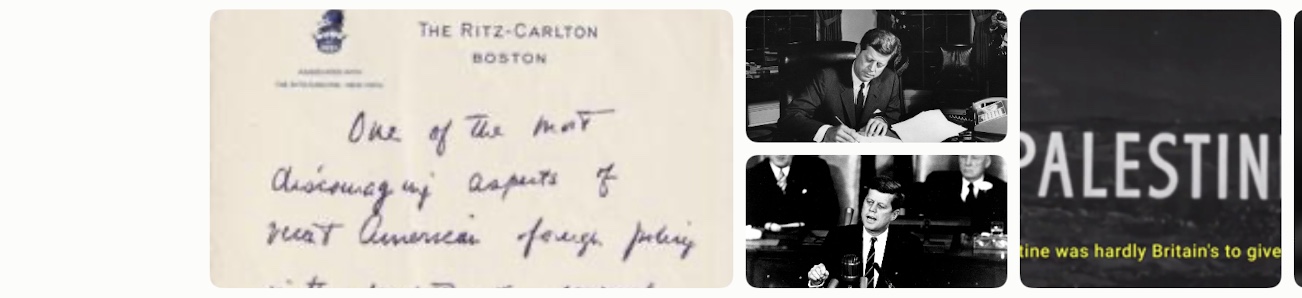 THE RITZ-CARLTON
BOSTON
One of the most
discouraging aspects of
recent American foreign policy
PALESTIN
tine was hardly Britain's to give